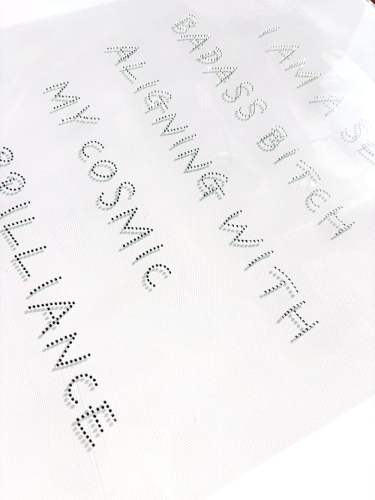 I AM A SE
BADASS BITCH
ALIGNING WITH
MY COSMIC
BRILLIANCE